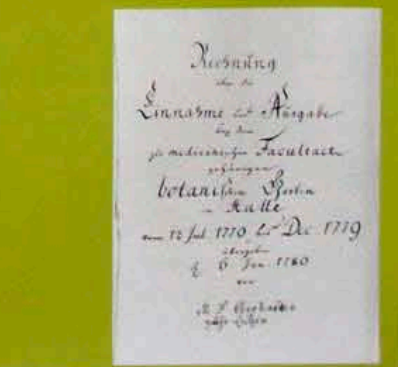 Rechnung
über die
Einnahme und Ausgabe
bey dem
zur medicinischen Facultaet
gehörigen
botanischen Garten
in Halle
vom 12 Jul 1770 bis Dec 1779
übergeben
d 6 Jan 1780
von